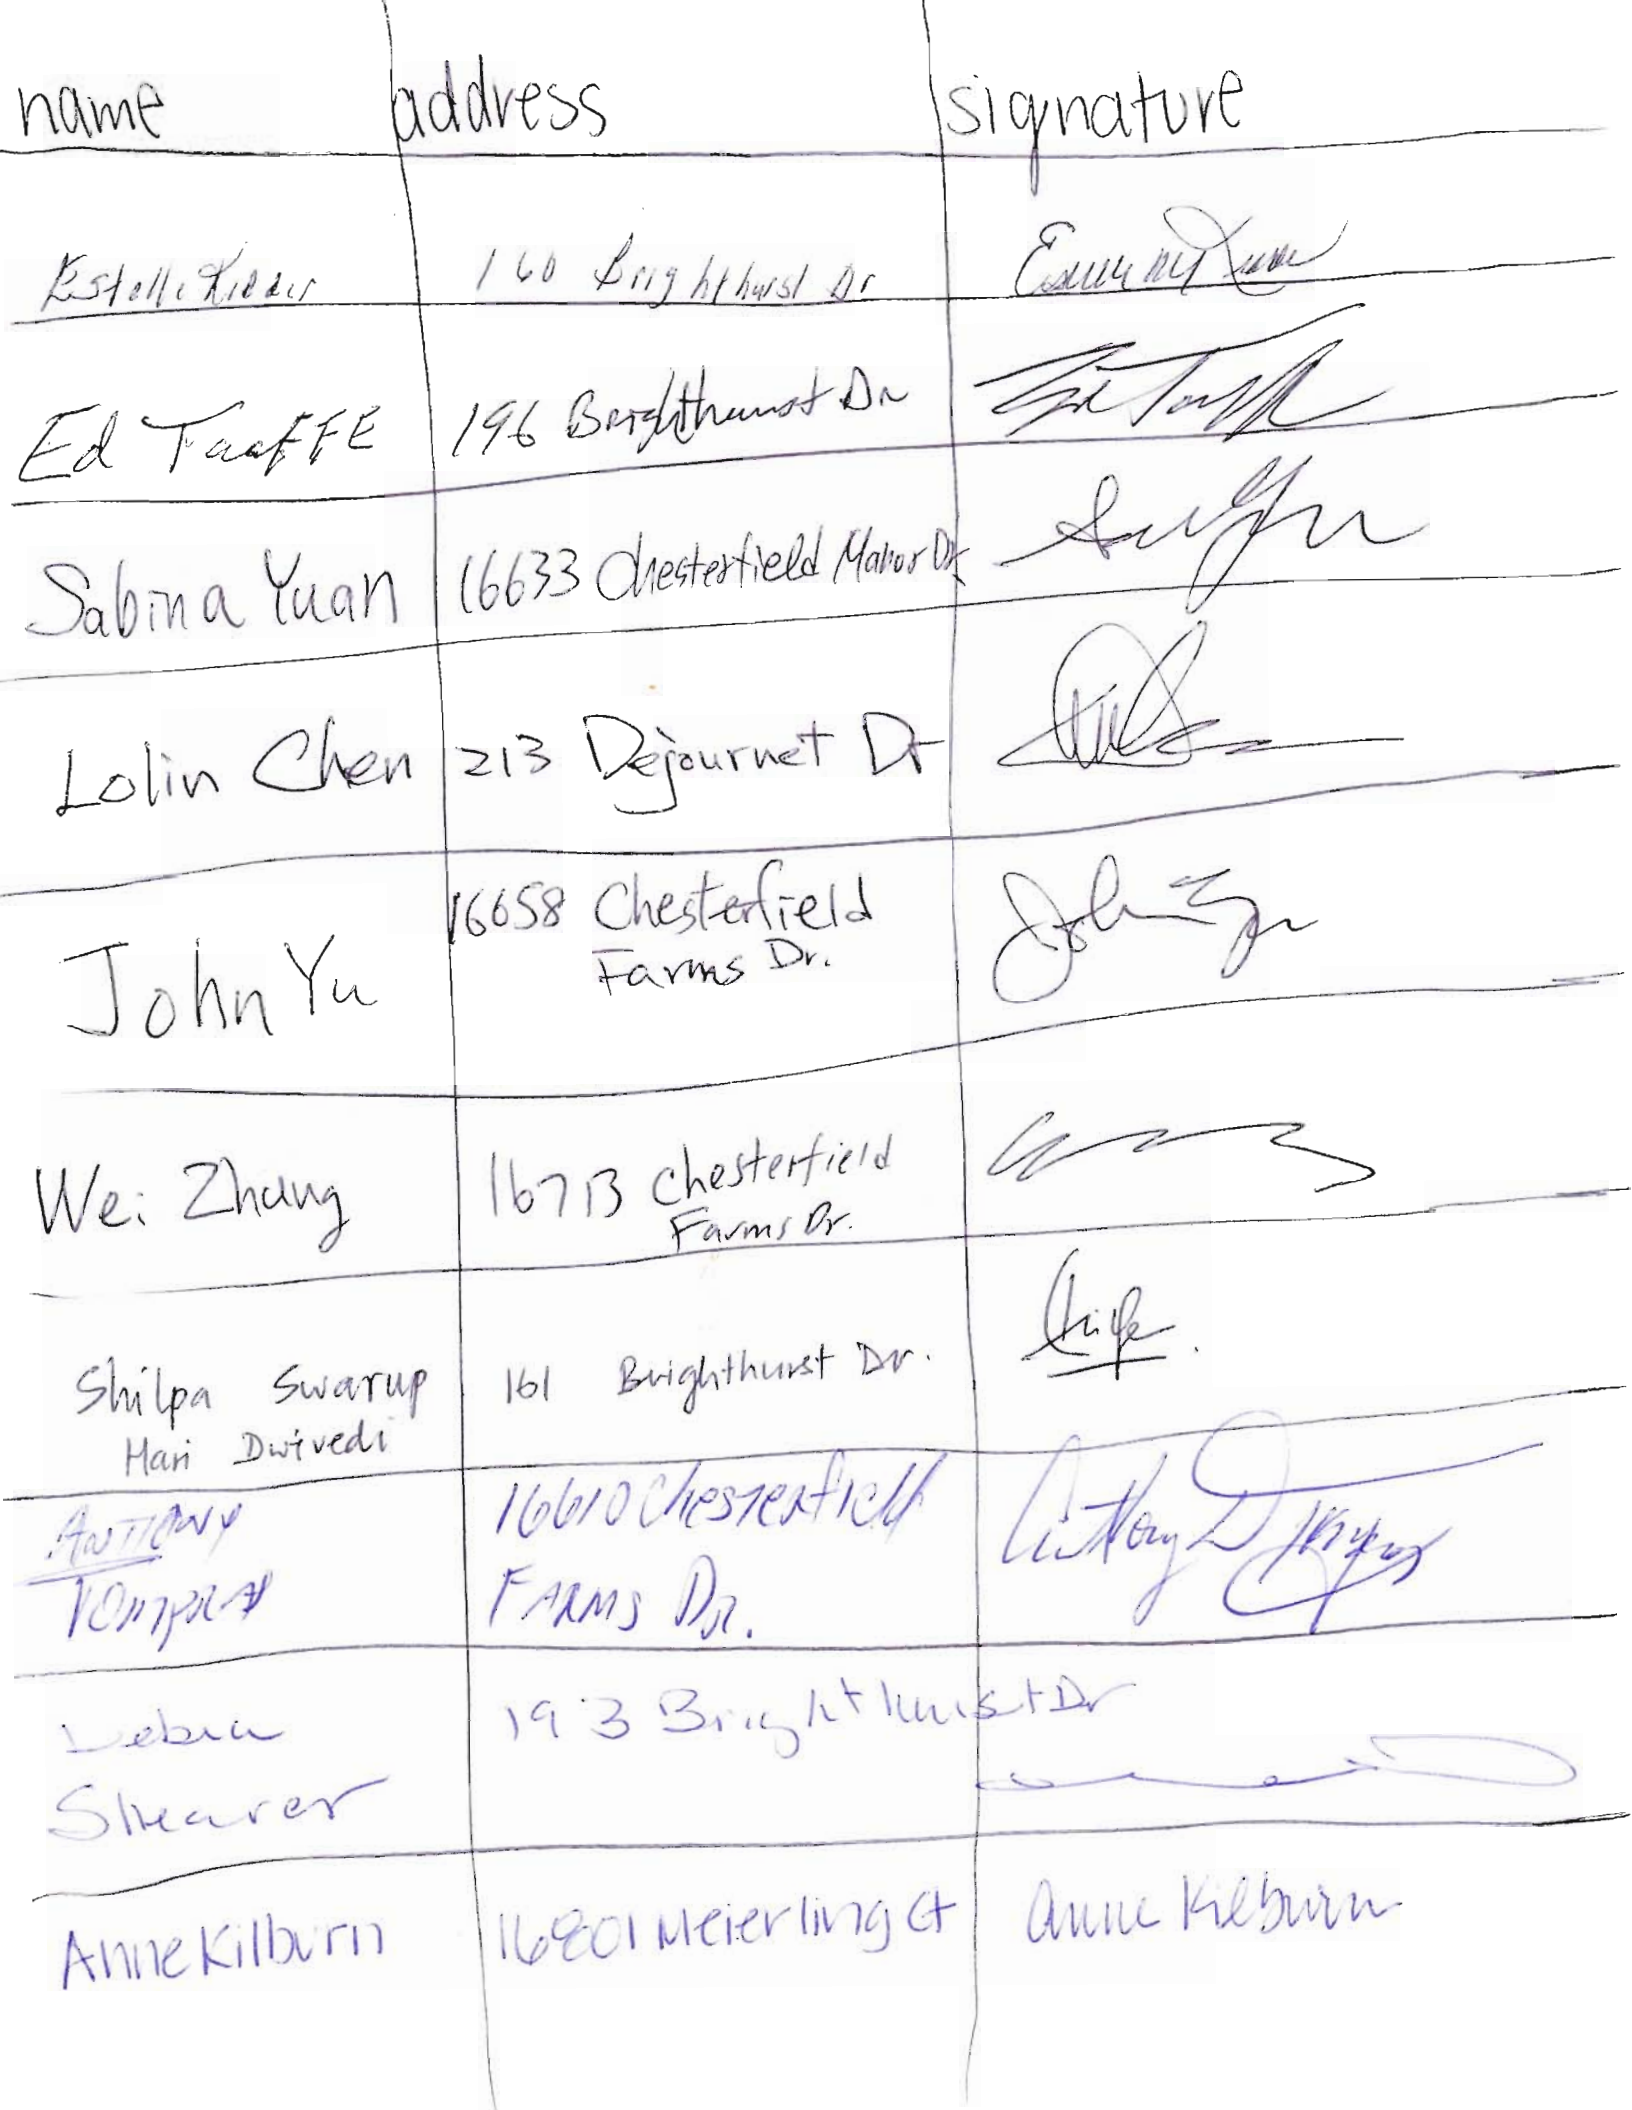 name address signature
Estelle 160 Brighthurst Dr
Ed TaaFFE 196 Brighthurst Dr Ed Taaffe
Sabina Yuan 16633 Chesterfield Manor Dr
Lolin Chen 213 Dejournet Dr
John Yu 16658 Chesterfield
Farms Dr. John Yu
Wei Zhang 16713 Chesterfield
Farms Dr.
Shilpa Swarup 161 Brighthurst Dr.
Hari Dwivedi
ANTHONY 16610 Chesterfield Anthony
FARMS Dr.
Debra 193 Brighthurst Dr
Shearer
Anne Kilburn 16801 Meierling Ct Anne Kilburn